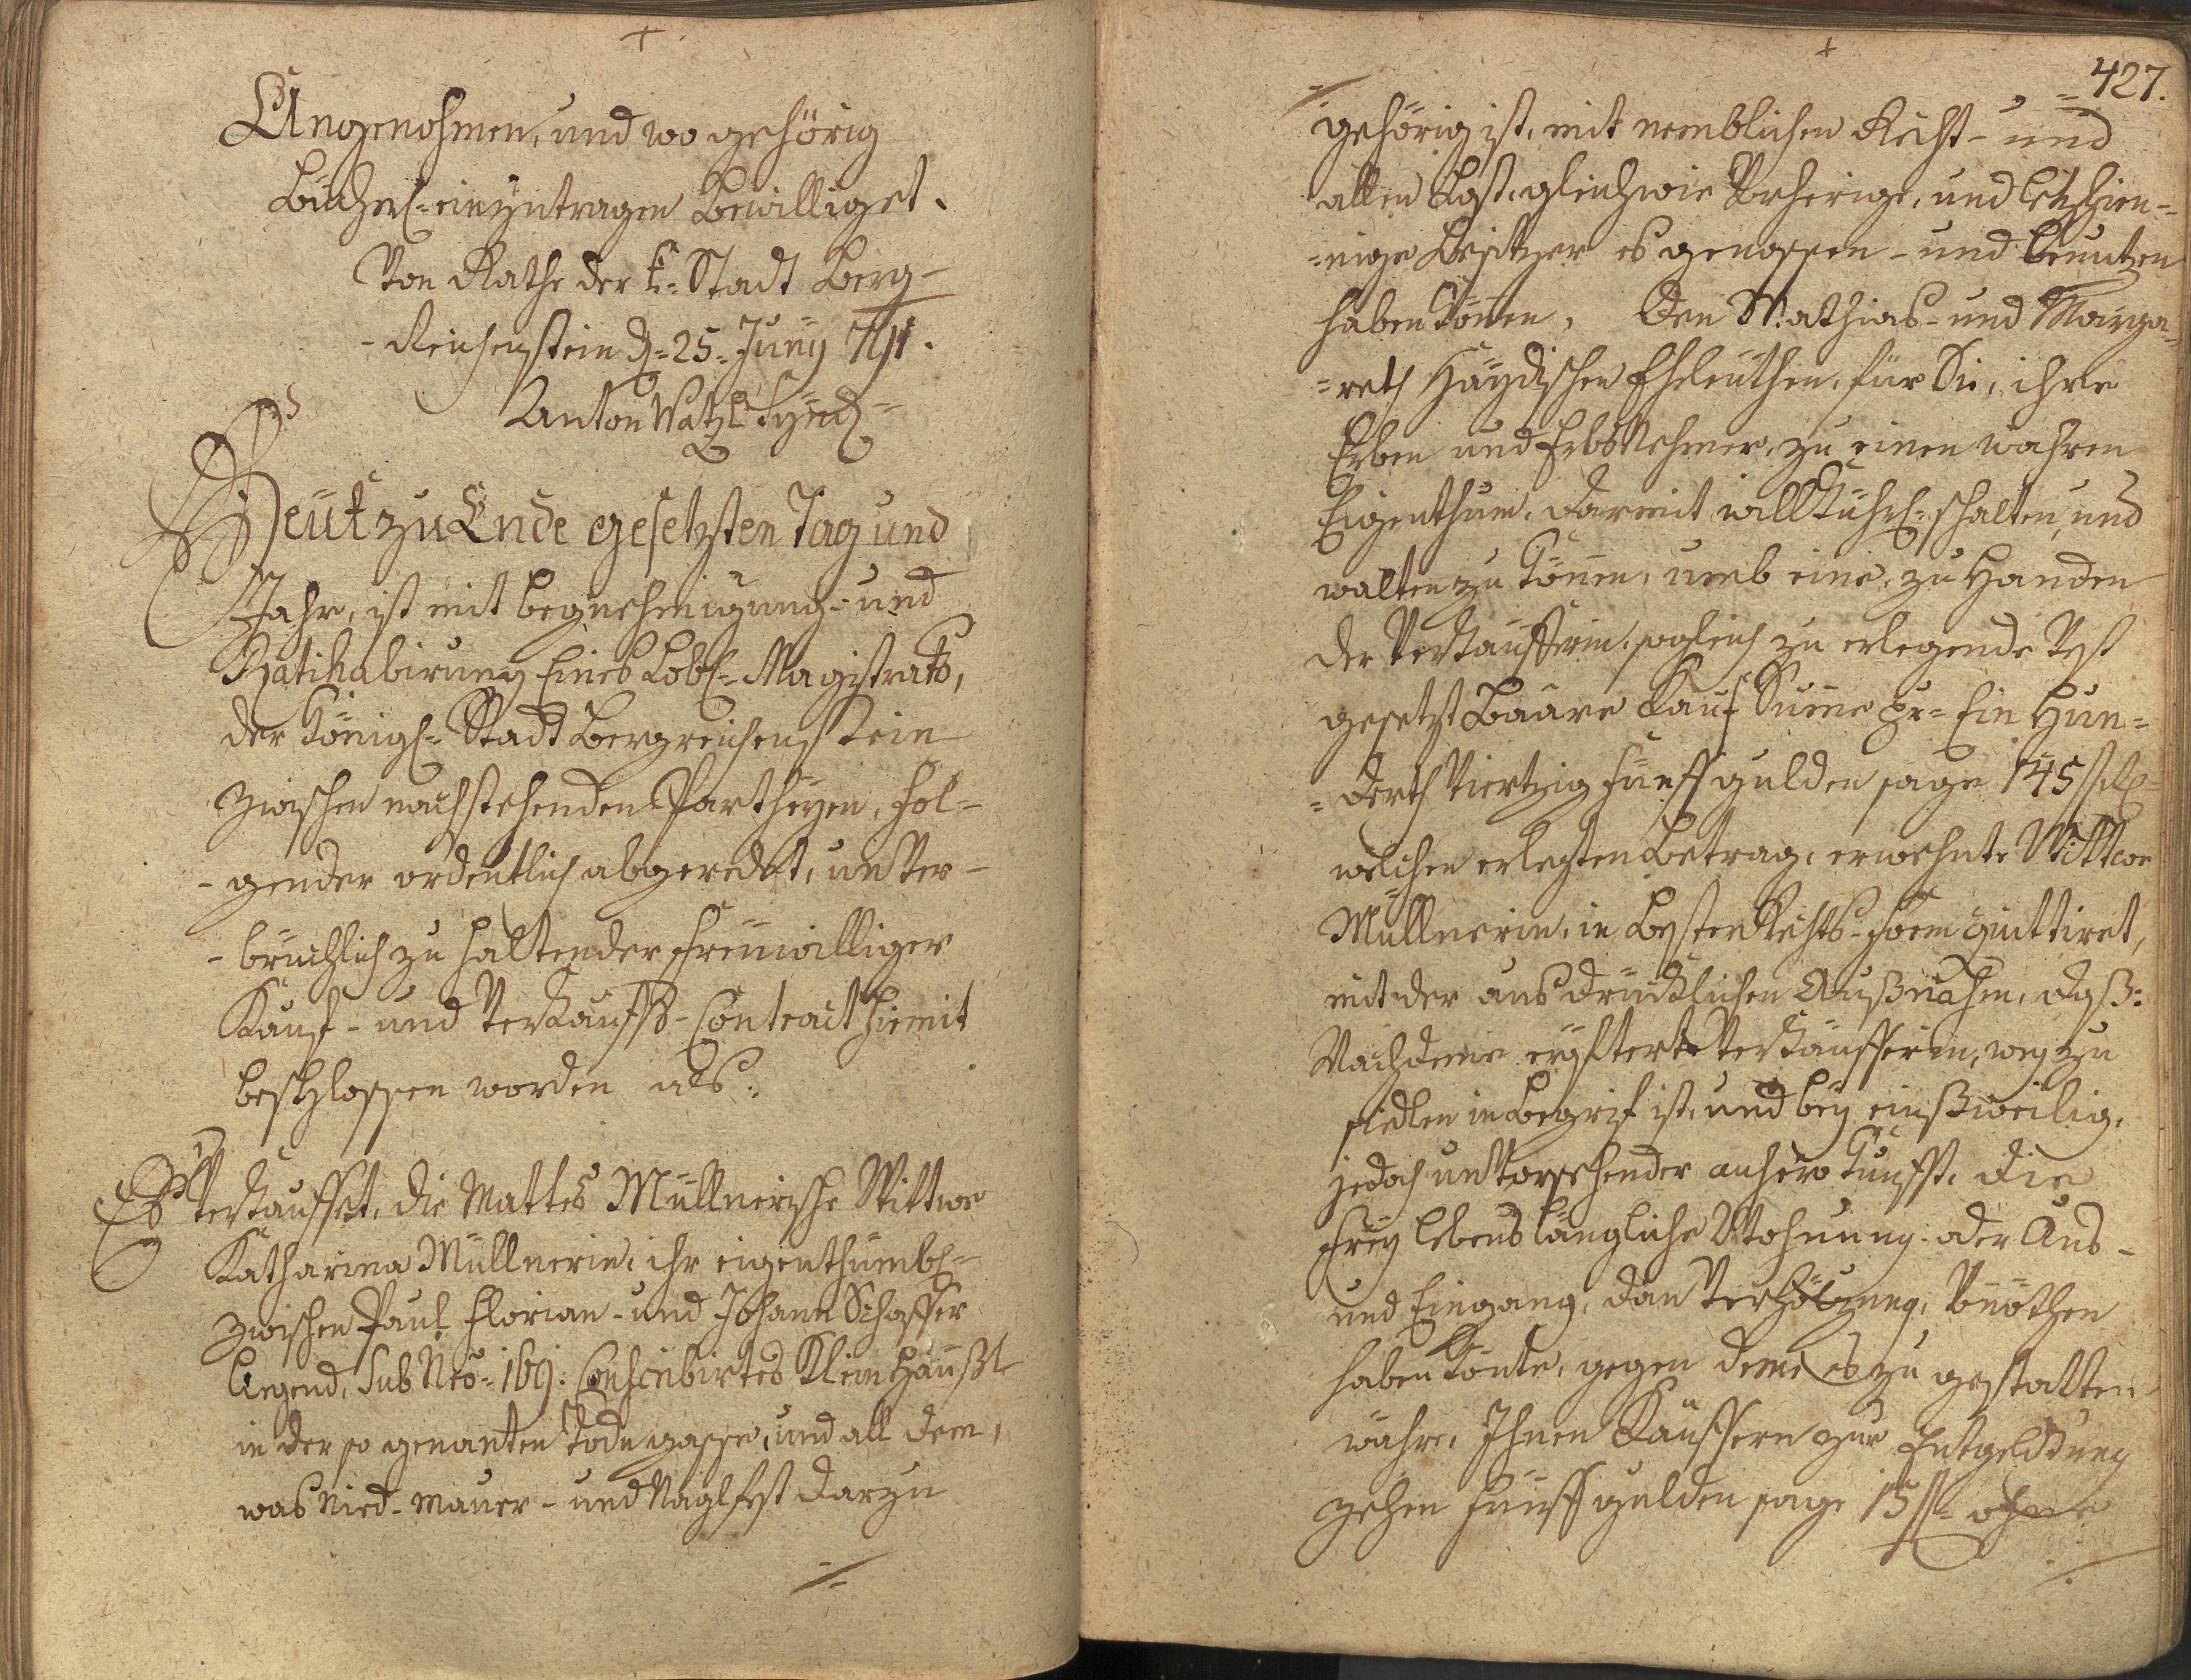 Angenohmen, und wo gehörig
Bücherl: einzutragen Bewilliget.
Von Rathe der k: Stadt Berg-
-Reichenstein d: 25. Juny 791.
Anton Watzl Synd:
Heut zu Ende gesetzten Tag und
Jahr, ist mit begnehmigung- und
Ratihabirung Eines Löbl: Magistrats,
der Königl: Stadt Bergreichenstein
zwischen nachstehenden Partheyen, fol-
-gender ordentlich abgeredet, unver-
-brüchlich zu haltender freüwilliger
Kauf- und Verkauffs-Contract hiemit
beschlossen worden als:
Es Verkauffet, die Mattes Müllnerische Wittwe
Katharina Müllnerin, ihr eigenthümbl:
zwischen Paul Florian- und Johann Schaffer
liegend, sub Nro: 169: Conscribirtes Klein Häußl
in der so genanten Todngassen, und all dem,
was Nied- Mauer- und Naglfest darzu
427.
gehörig ist, mit nemblichen Recht- und
allen Last, gleichwie Vorherige, und letzhien-
-nige Besitzer es genossen- und benutzen
haben können, Den Mathias- und Marga-
-reth Haydischen Eheleuthen, für Sie, ihre
Erben und Erbsnehmer, zu einen wahren
Eigenthum, darmit willkührl: schalten, und
walten zu können, umb eine, zu Handen
der Verkaufferin, sogleich zu erlegende Fest
gesetzt Baare Kauf Summe pr: Ein Hun-
-derth Viertzig fünff gulden sage 145 f
welchen erlegten Betrag, erwehnte Wittwe
Müllnerin, in Besten Rechts-Form quittiret,
mit der ausdrücklichen Außnahm, daß:
Nachdeme eröfterte Verkäufferin, weg zu
siedlen in Begrif ist, und bey einßweilig,
jedoch unvorsehender anhero Kunfft, die
Frey lebenslängliche Wohnung oder Aus-
und Eingang, dan Verhöltzung, Vonöthen
haben könte, gegen deme es zu gestatten
währe, Ihnen Käuffern zur Entgeldung
zehen fünff gulden sage 15 f: ohne